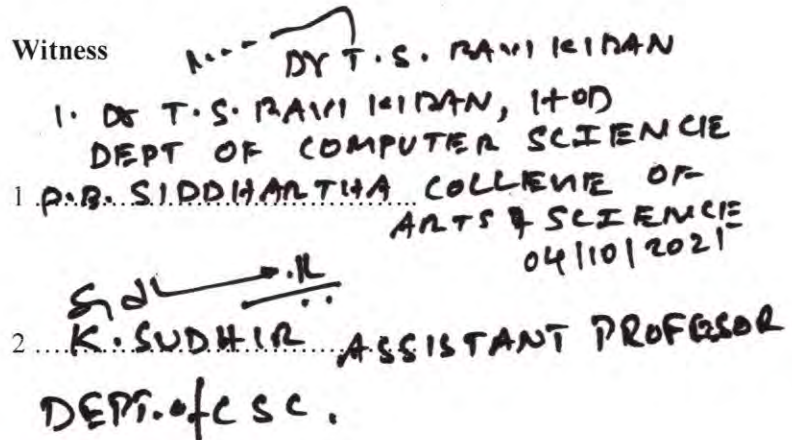 Witness
Dr T.S. RAVI KIRAN
1. Dr T.S. RAVI KIRAN, HOD
DEPT OF COMPUTER SCIENCE
1 P.B. SIDDHARTHA COLLEGE OF
ARTS & SCIENCE
04/10/2021
2 ....K. SUDHIR ASSISTANT PROFESSOR
DEPT. of CSC.